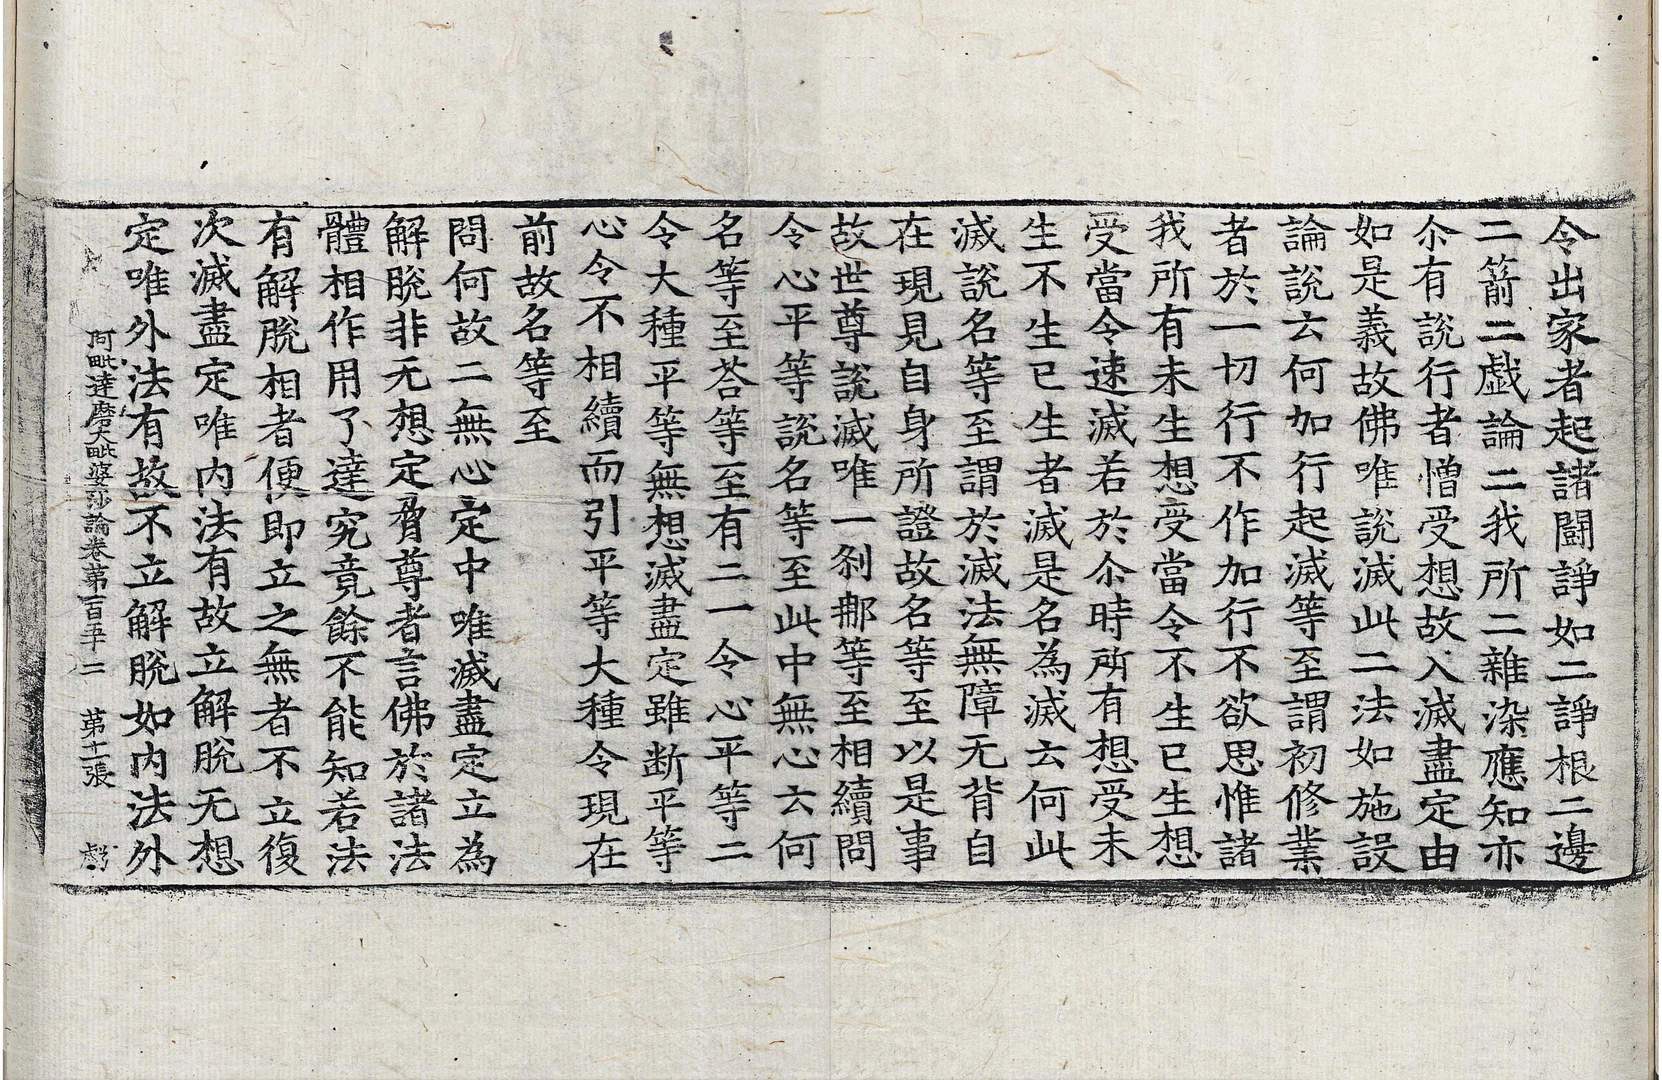 令出家者起諸鬪諍如二諍根二邊
二箭二戱論二我所二雜染應知亦
尒有說行者憎受想故入滅盡定由
如是義故佛唯說滅此二法如施設
論說云何加行起滅等至謂初修業
者於一切行不作加行不欲思惟諸
我所有未生想受當令不生已生想
受當令速滅若於尒時所有想受未
生不生已生者滅是名為滅云何此
滅說名等至謂於滅法無障无背自
在現見自身所證故名等至以是事
故世尊說滅唯一剎那等至相續問
令心平等說名等至此中無心云何
名等至荅等至有二一令心平等二
令大種平等無想滅盡定雖断平等
心令不相續而引平等大種令現在
前故名等至
問何故二無心定中唯滅盡定立為
解脫非无想定脅尊者言佛於諸法
體相作用了達究竟餘不能知若法
有解脫相者便即立之無者不立復
次滅盡定唯内法有故立解脫无想
定唯外法有故不立解脫如内法外
阿毗達磨大毗婆沙論卷第一百五十二 第十一張